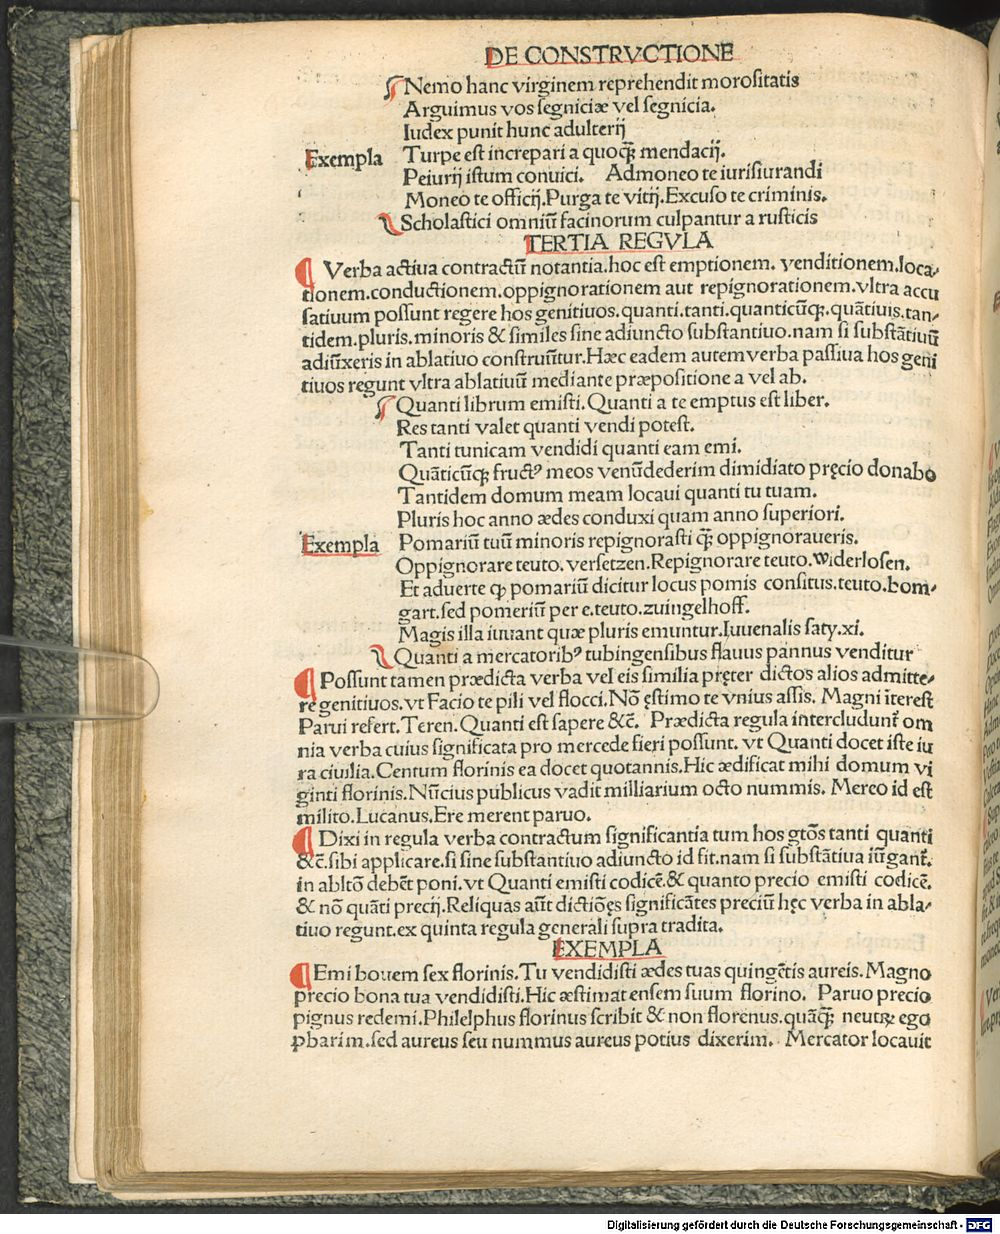 DE CONSTRVCTIONE
Nemo hanc virginem reprehendit morositatis
Arguimus vos segniciæ vel segnicia.
Iudex punit hunc adulterij
Exempla Turpe est increpari a quoqꝫ mendacij.
Peiurij istum conuici. Admoneo te iurisiurandi
Moneo te officij. Purga te vitij. Excuso te criminis.
Scholastici omniū facinorum culpantur a rusticis
TERTIA REGVLA
¶ Verba actiua contractū notantia.hoc est emptionem. venditionem.loca-
tionem.conductionem.oppignorationem aut repignorationem.vltra accu
satiuum possunt regere hos genitiuos.quanti.tanti.quanticūqꝫ.quātiuis.tan-
tidem.pluris.minoris & similes sine adiuncto substantiuo.nam si substātiuū
adiūxeris in ablatiuo construūtur.Hæc eadem autem verba passiua hos geni
tiuos regunt vltra ablatiuū mediante præpositione a vel ab.
Quanti librum emisti.Quanti a te emptus est liber.
Res tanti valet quanti vendi potest.
Tanti tunicam vendidi quanti eam emi.
Quāticūqꝫ fructꝰ meos venūdederim dimidiato pręcio donabo
Tantidem domum meam locaui quanti tu tuam.
Pluris hoc anno ædes conduxi quam anno superiori.
Exempla Pomariū tuū minoris repignorasti qꝫ̄ oppignoraueris.
Oppignorare teuto. versetzen.Repignorare teuto.Widerlosen.
Et aduerte ꝙ pomariū dicitur locus pomis consitus.teuto.bom-
gart.sed pomeriū per e.teuto.zuingelhoff.
Magis illa iuuant quæ pluris emuntur.Iuuenalis saty.xi.
Quanti a mercatoribꝰ tubingensibus flauus pannus venditur
¶ Possunt tamen prædicta verba vel eis similia pręter dictos alios admitte-
re genitiuos.vt Facio te pili vel flocci.Nō ęstimo te vnius assis. Magni īterest
Parui refert.Teren.Quanti est sapere &c̄. Prædicta regula intercludunt᷑ om
nia verba cuius significata pro mercede fieri possunt. vt Quanti docet iste iu
ra ciuilia.Centum florinis ea docet quotannis.Hic ædificat mihi domum vi
ginti florinis.Nūcius publicus vadit milliarium octo nummis. Merco id est
milito.Lucanus.Ere merent paruo.
¶ Dixi in regula verba contractum significantia tum hos gtōs tanti quanti
&c̄.sibi applicare.si sine substantiuo adiuncto id fit.nam si substātiua iūgant᷑.
in abltō debēt poni.vt Quanti emisti codicē.& quanto precio emisti codicē.
& nō quāti precij.Reliquas aūt dictiōęs significātes preciū hęc verba in abla-
tiuo regunt.ex quinta regula generali supra tradita.
EXEMPLA
¶ Emi bouem sex florinis.Tu vendidisti ædes tuas quingētis aureis. Magno
precio bona tua vendidisti.Hic æstimat ensem suum florino. Paruo precio
pignus redemi.Philelphus florinus scribit & non florenus.quāqꝫ̄ neutrꝫ ego
pbarim.sed aureus seu nummus aureus potius dixerim. Mercator locauit
Digitalisierung gefördert durch die Deutsche Forschungsgemeinschaft - DFG